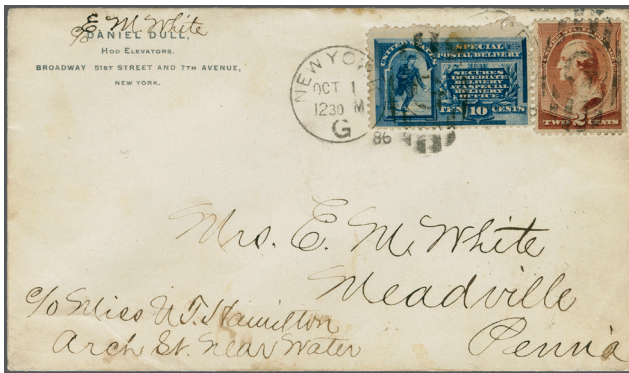 E. M. White
DANIEL DULL,
HOD ELEVATORS.
BROADWAY 51ST STREET AND 7TH AVENUE,
NEW YORK.
NEW YORK
OCT 1
1230 M
G
86
UNITED STATES
SPECIAL
POSTAL DELIVERY
SECURES
IMMEDIATE
DELIVERY
AT A SPECIAL
DELIVERY
OFFICE
TEN 10 CENTS
TWO 2 CENTS
Mrs. E. M. White
Meadville
Penna
c/o Miss Hamilton
Arch St. near Water